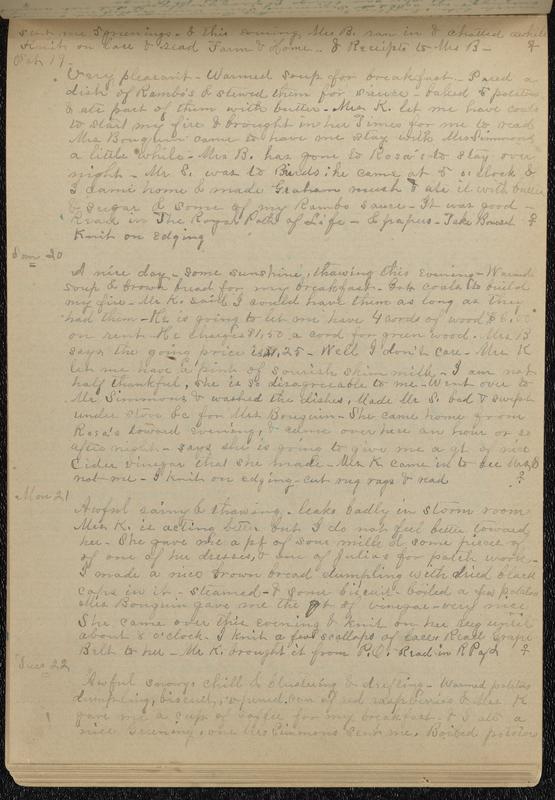 sent me Greenings. & this evening Mrs B. ran in & chatted awhile
Knit on lace & read Farm & Home. & Receipts to Mrs B—
Sat 19.
Very pleasant - Warmed soup for breakfast - Pared a
dish of Rambo's & stewed them for sauce - baked 5 potatoes
& ate part of them with butter - Mrs K. let me have coals
to start my fire & brought in her Times for me to read
Mrs Bonguin came to have me stay with Mrs Simmons
a little while - Mrs B. has gone to Rosa's to stay over
night - Mr S. was to Birds, he came at 5 o'clock &
I came home & made Graham mush & ate it with butter
& sugar & some of my Rambo sauce - It was good -
Read in The Royal Path of Life - & papers -
Knit on edging
Sun 20
A nice day - some sunshine, thawing this evening - Warmed
soup & brown bread for my breakfast - Got coals to build
my fire - Mr K. said I could have them as long as they
had them - He is going to let me have 4 cords of wood $6.00
on rent - He charges $1,50 a cord for green wood. Mrs B
says the going price is $1,25 - Well I don't care - Mr K
let me have a pint of sourish skim milk - I am not
half thankful, she is so disagreeable to me - Went over to
Mr Simmons & washed the dishes, Made Mr S. bed & swept
under stove &c for Mrs Bonguin - She came home from
Rosa's toward evening, & came over here an hour or so
after night - says she is going to give me a qt of nice
Cider vinegar that she made - Mrs K. came in to see
not me - I knit on edging - cut rug rags & read
Mon 21
Awful rainy & thawing - leaks badly in storm room
Mrs K. is acting better but I do not feel better toward
her - She gave me a pt of sour milk & some pieces of
of one of her dresses, & one of Julias for patch work -
I made a nice brown bread dumpling with dried black
caps in it - steamed - & some biscuit - boiled a few potatoes
Mrs Bonguin gave me the qt of vinegar - very nice
She came over this evening & knit on her leg until
about 8 o'clock - I knit a few scallops of lace - Read Grape
Belt to her - Mr K. brought it from P.O. Read in R Path
Tues 22
Awful snowy, chill & blustering & drifting - Warmed potatoes
dumpling, biscuit, opened can of red raspberries & Mrs K
gave me a cup of coffee for my breakfast - & I ate a
nice Greening, one Mrs Simmons sent me. Boiled potatoes